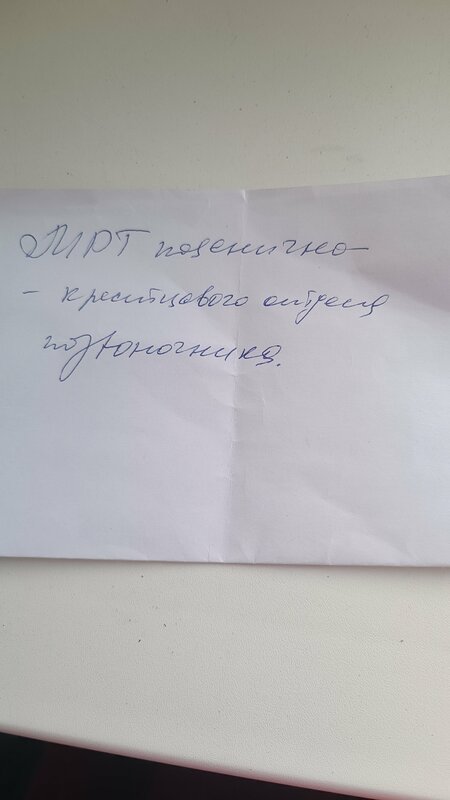 МРТ пояснично-
- крестцового отдела
позвоночника.